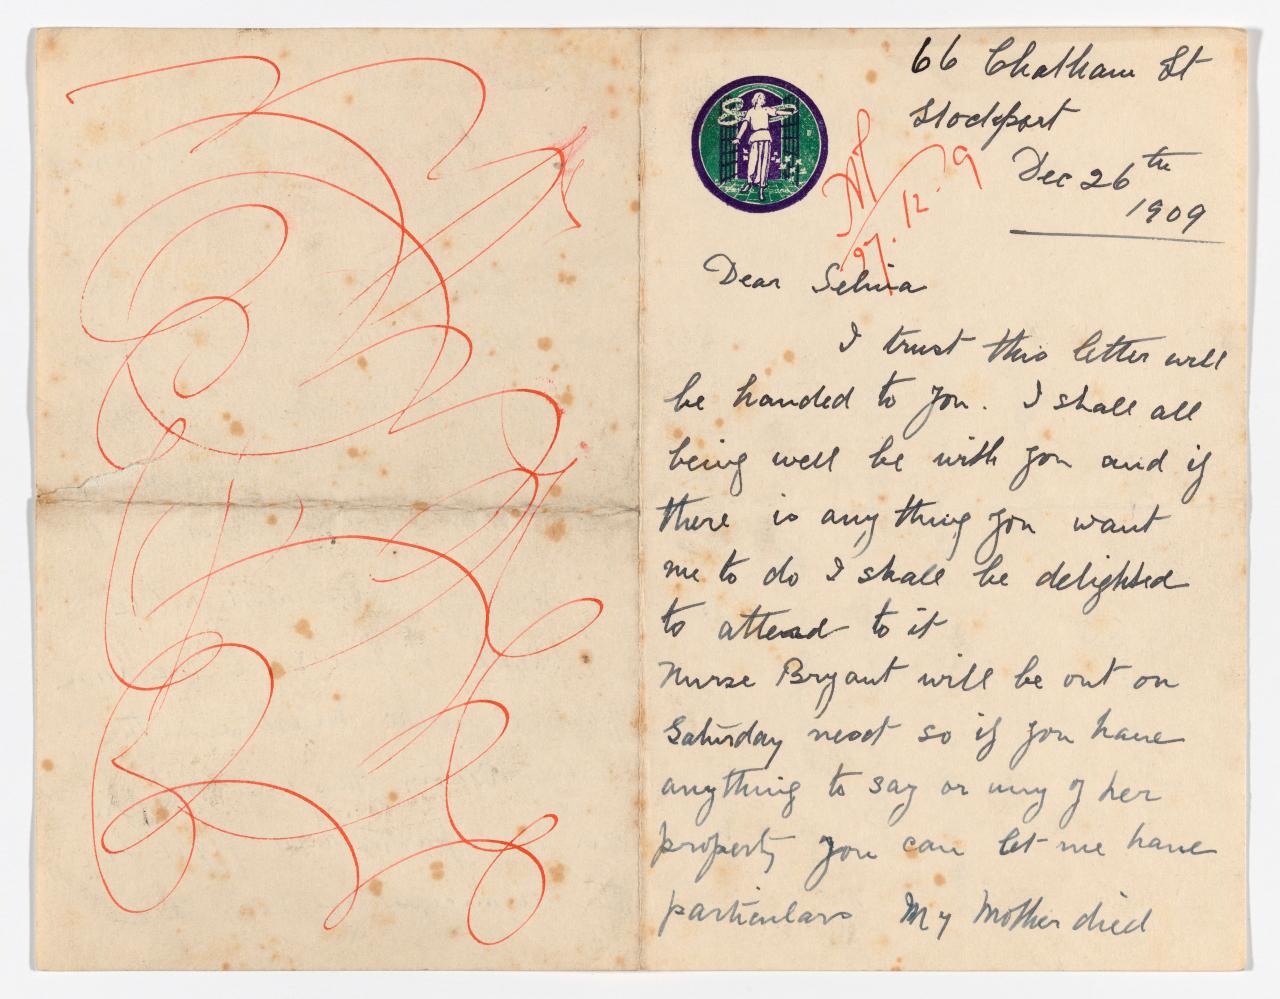 66 Chatham St
Stockport
Dec 26th
1909
27.12.9
Dear Selina
I trust this letter will
be handed to you. I shall all
being well be with you and if
there is any thing you want
me to do I shall be delighted
to attend to it
Nurse Bryant will be out on
Saturday next so if you have
anything to say or any of her
property you can let me have
particulars My Mother died